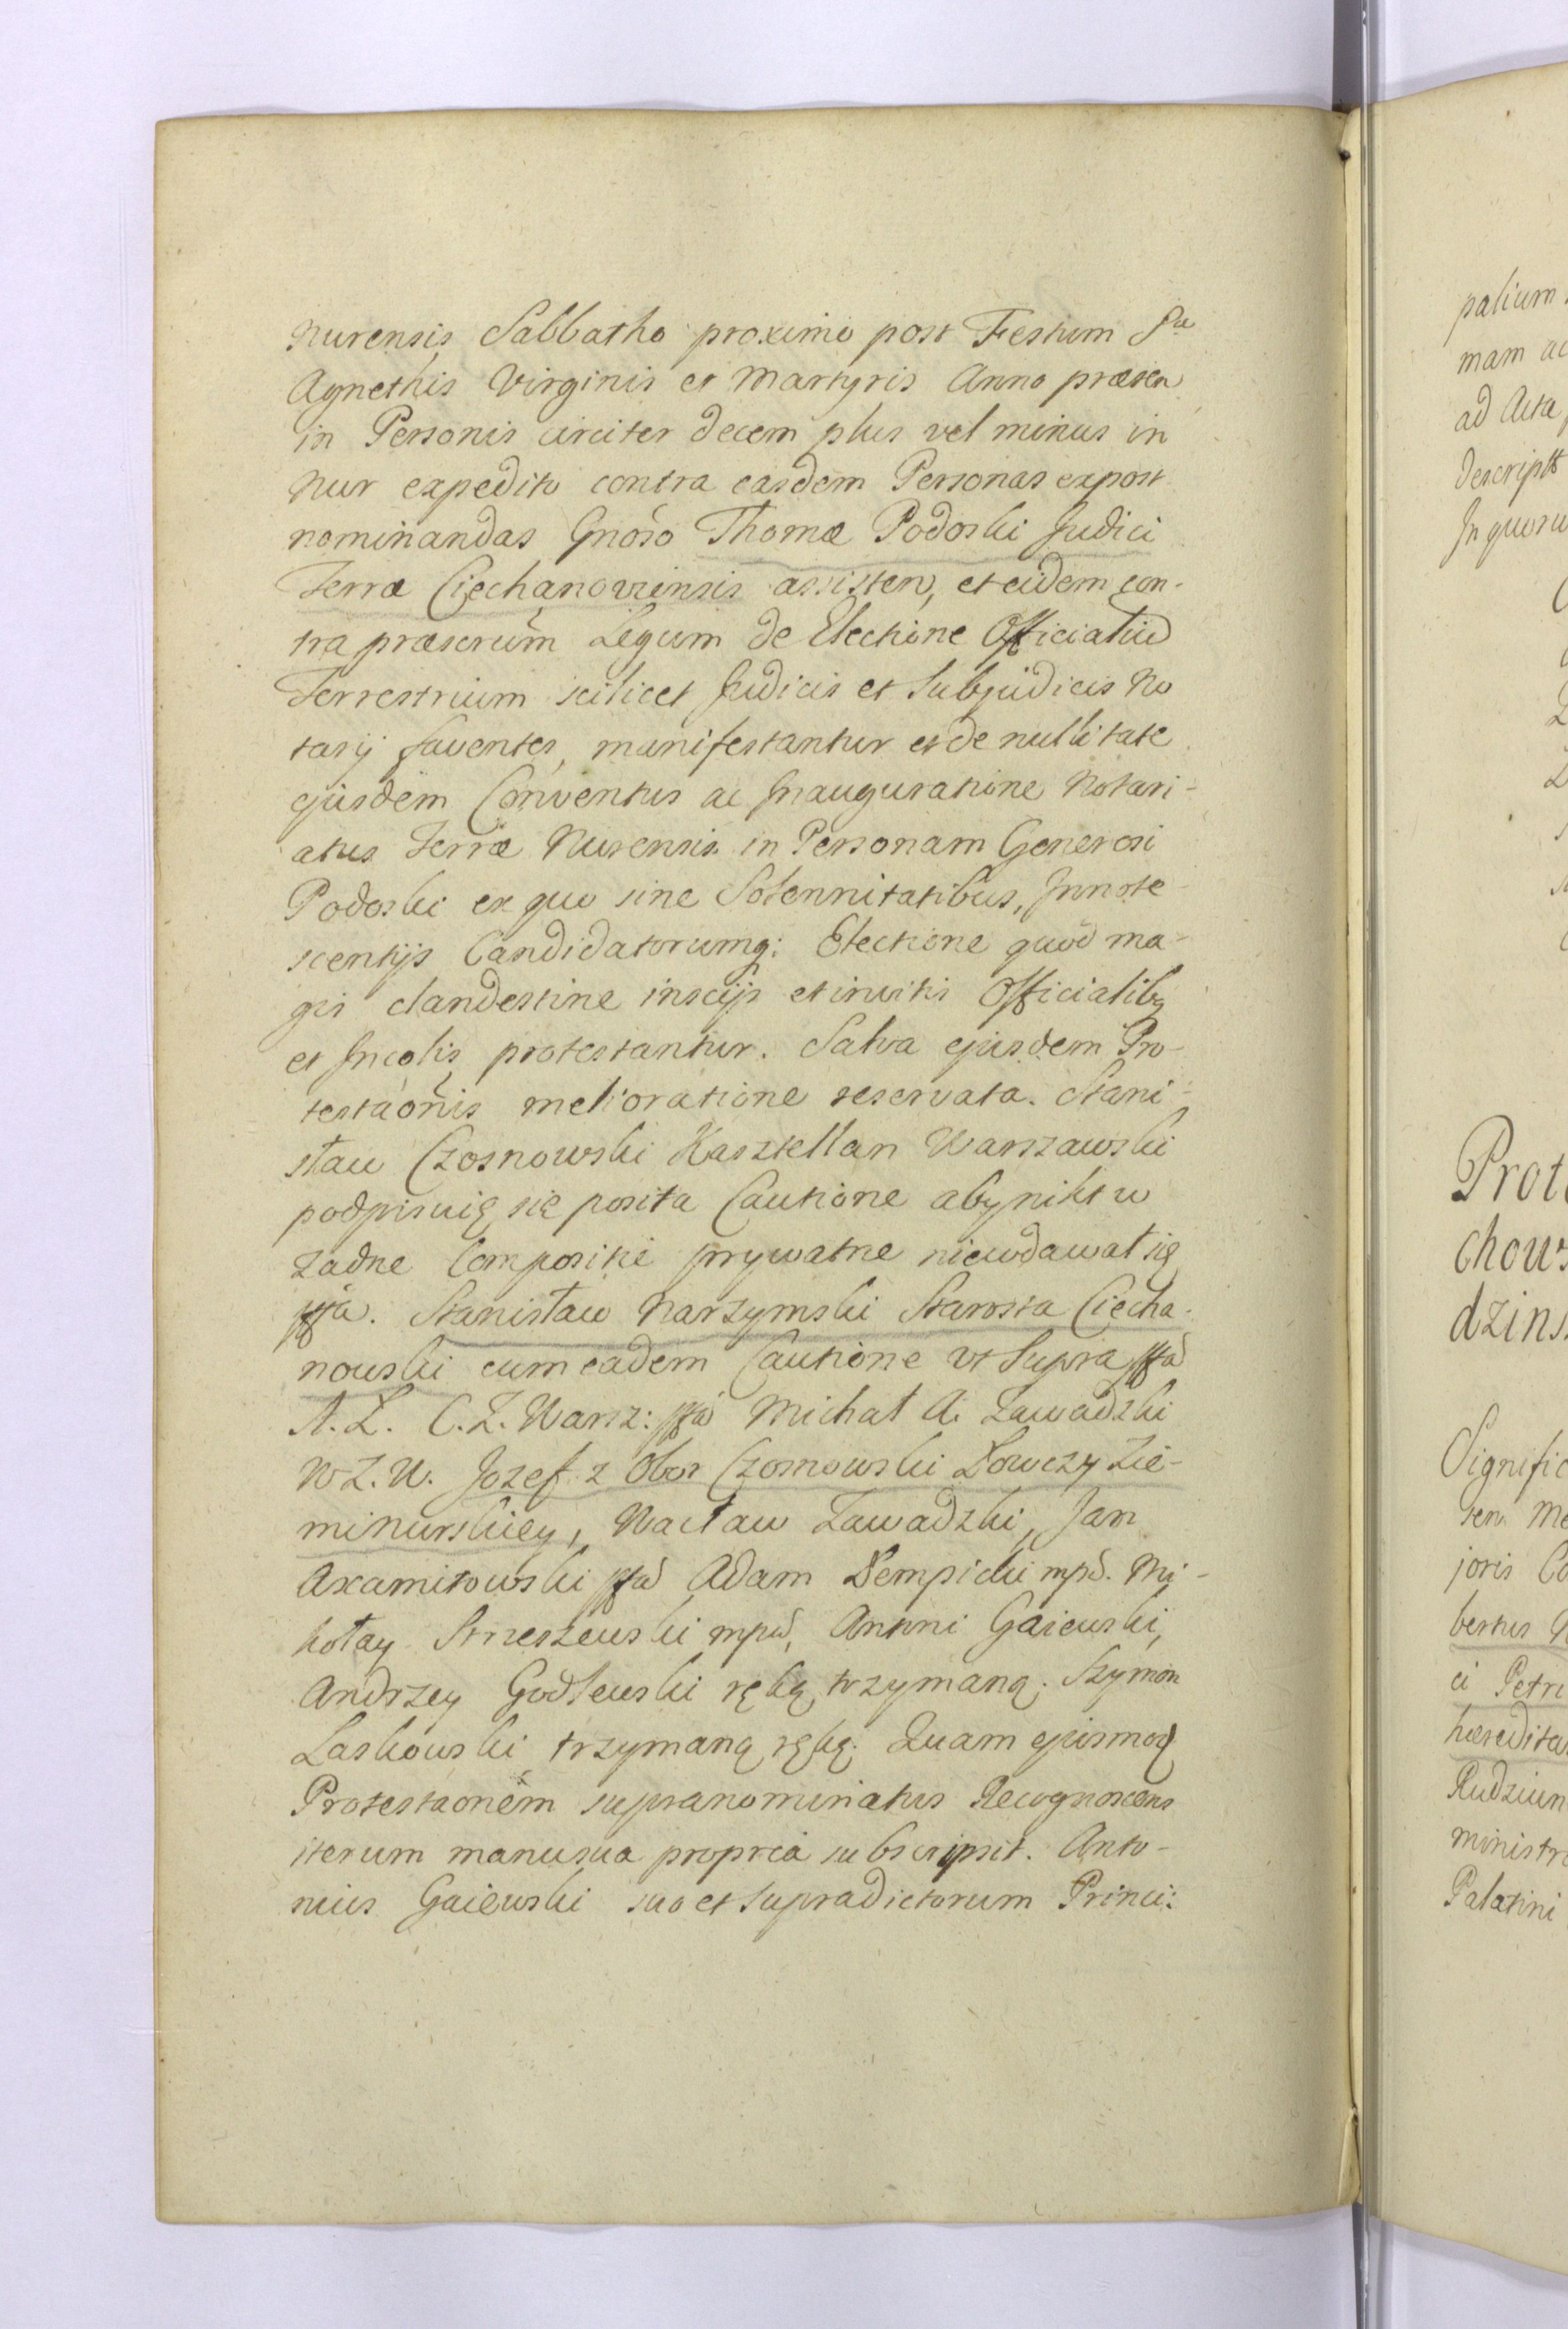 Nurensis Sabbatho proximo post Festum Sae
Agnethis Virginis et Martyris Anno praesen
in Personis circiter decem plus vel minus in
Nur expedito contra easdem Personas expost
nominandas Gnoso Thomae Podoski Judici
Terrae Ciechanoviensis assisten, et eidem con-
tra praescrum Legum de Electione Officialiu
Terrestrium scilicet Judicis et Subjudicis No
tarij faventes, manifestantur et de nullitate
ejusdem Conventus ac Inauguratione Notari-
atus Terrae Nurensis in Personam Generosi
Podoski ex quo sine Solennitatibus, Innote-
scentijs Candidatorumq: Electione quod ma-
gis clandestine inscijs et invitis Officialibq
et Incolis protestantur. Salva ejusdem Pro-
testaonis melioratione reservata. Stani-
sław Czosnowski Kasztellan Warszawski
podpisuię się posita Cautione aby nikt w
żadne Compositie prywatne niewdawał się
mpa. Stanisław Narzymski Starosta Ciecha-
nowski cum eadem Cautione vt Supra mpa
A. Z. C. Z. Warsz: mpa Michał A. Zawadzki
W Z. N. Jozef z Obor Czosnowski Łowczy Zie-
mi Nurskiey, Wacław Zawadzki, Jan
Axamitowski mpa Adam Dempicki mpa. Mi-
kołay Strzeszewski mpa, Antoni Gaiewski,
Andrzey Godlewski ręką trzymaną. Szymon
Laskowski trzymaną ręką. Quam ejusmod
Protestaonem supranominatus Recognoscens
iterum manu sua propria subscripsit. Anto-
nius Gaiewski suo et supradictorum Princi:
palium
mam ac
ad Acta
descript
In quoru
Prot
chows
dzins
Signific
sen Me
joris Co
bertus
ci Petri
haeredita
Rudzien
ministr
Palatini